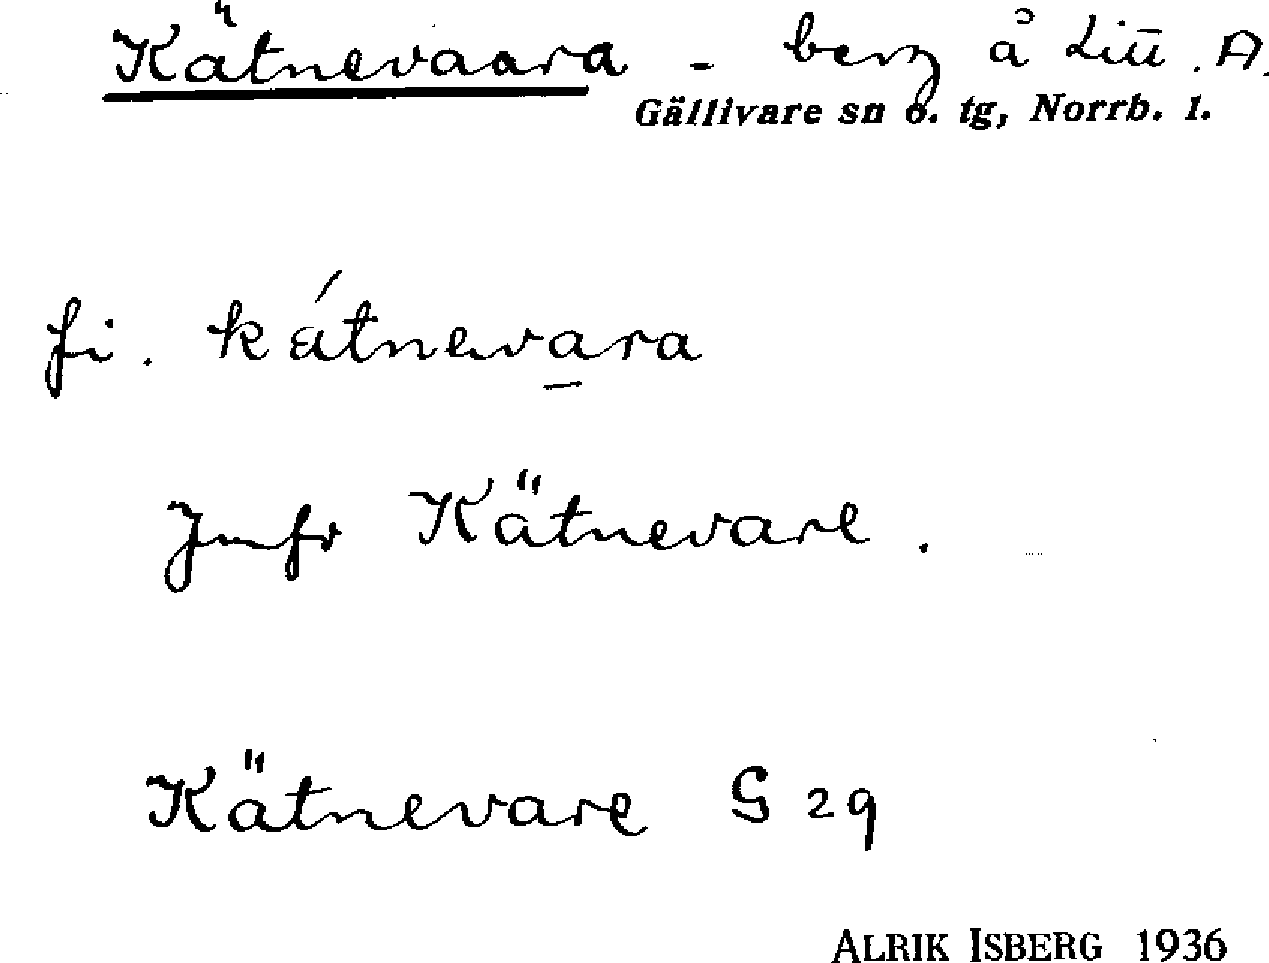 Kätnevaara - berg å Liu. A.
Gällivare sn o. tg, Norrb. l.
fi. kátnevara
Jmfr Kätnevare.
Kätnevare G 29
ALRIK ISBERG 1936